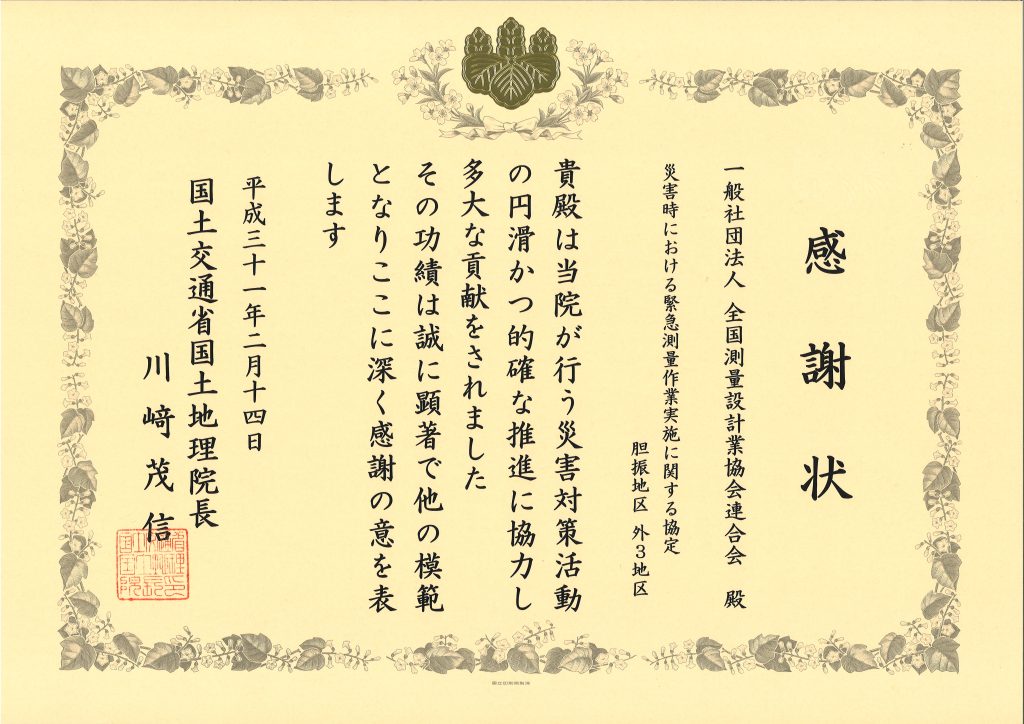 感謝状
一般社団法人 全国測量設計業協会連合会 殿
災害時における緊急測量作業実施に関する協定
胆振地区 外3地区
貴殿は当院が行う災害対策活動
の円滑かつ的確な推進に協力し
多大な貢献をされました
その功績は誠に顕著で他の模範
となりここに深く感謝の意を表
します
平成三十一年二月十四日
国土交通省国土地理院長
川﨑茂信